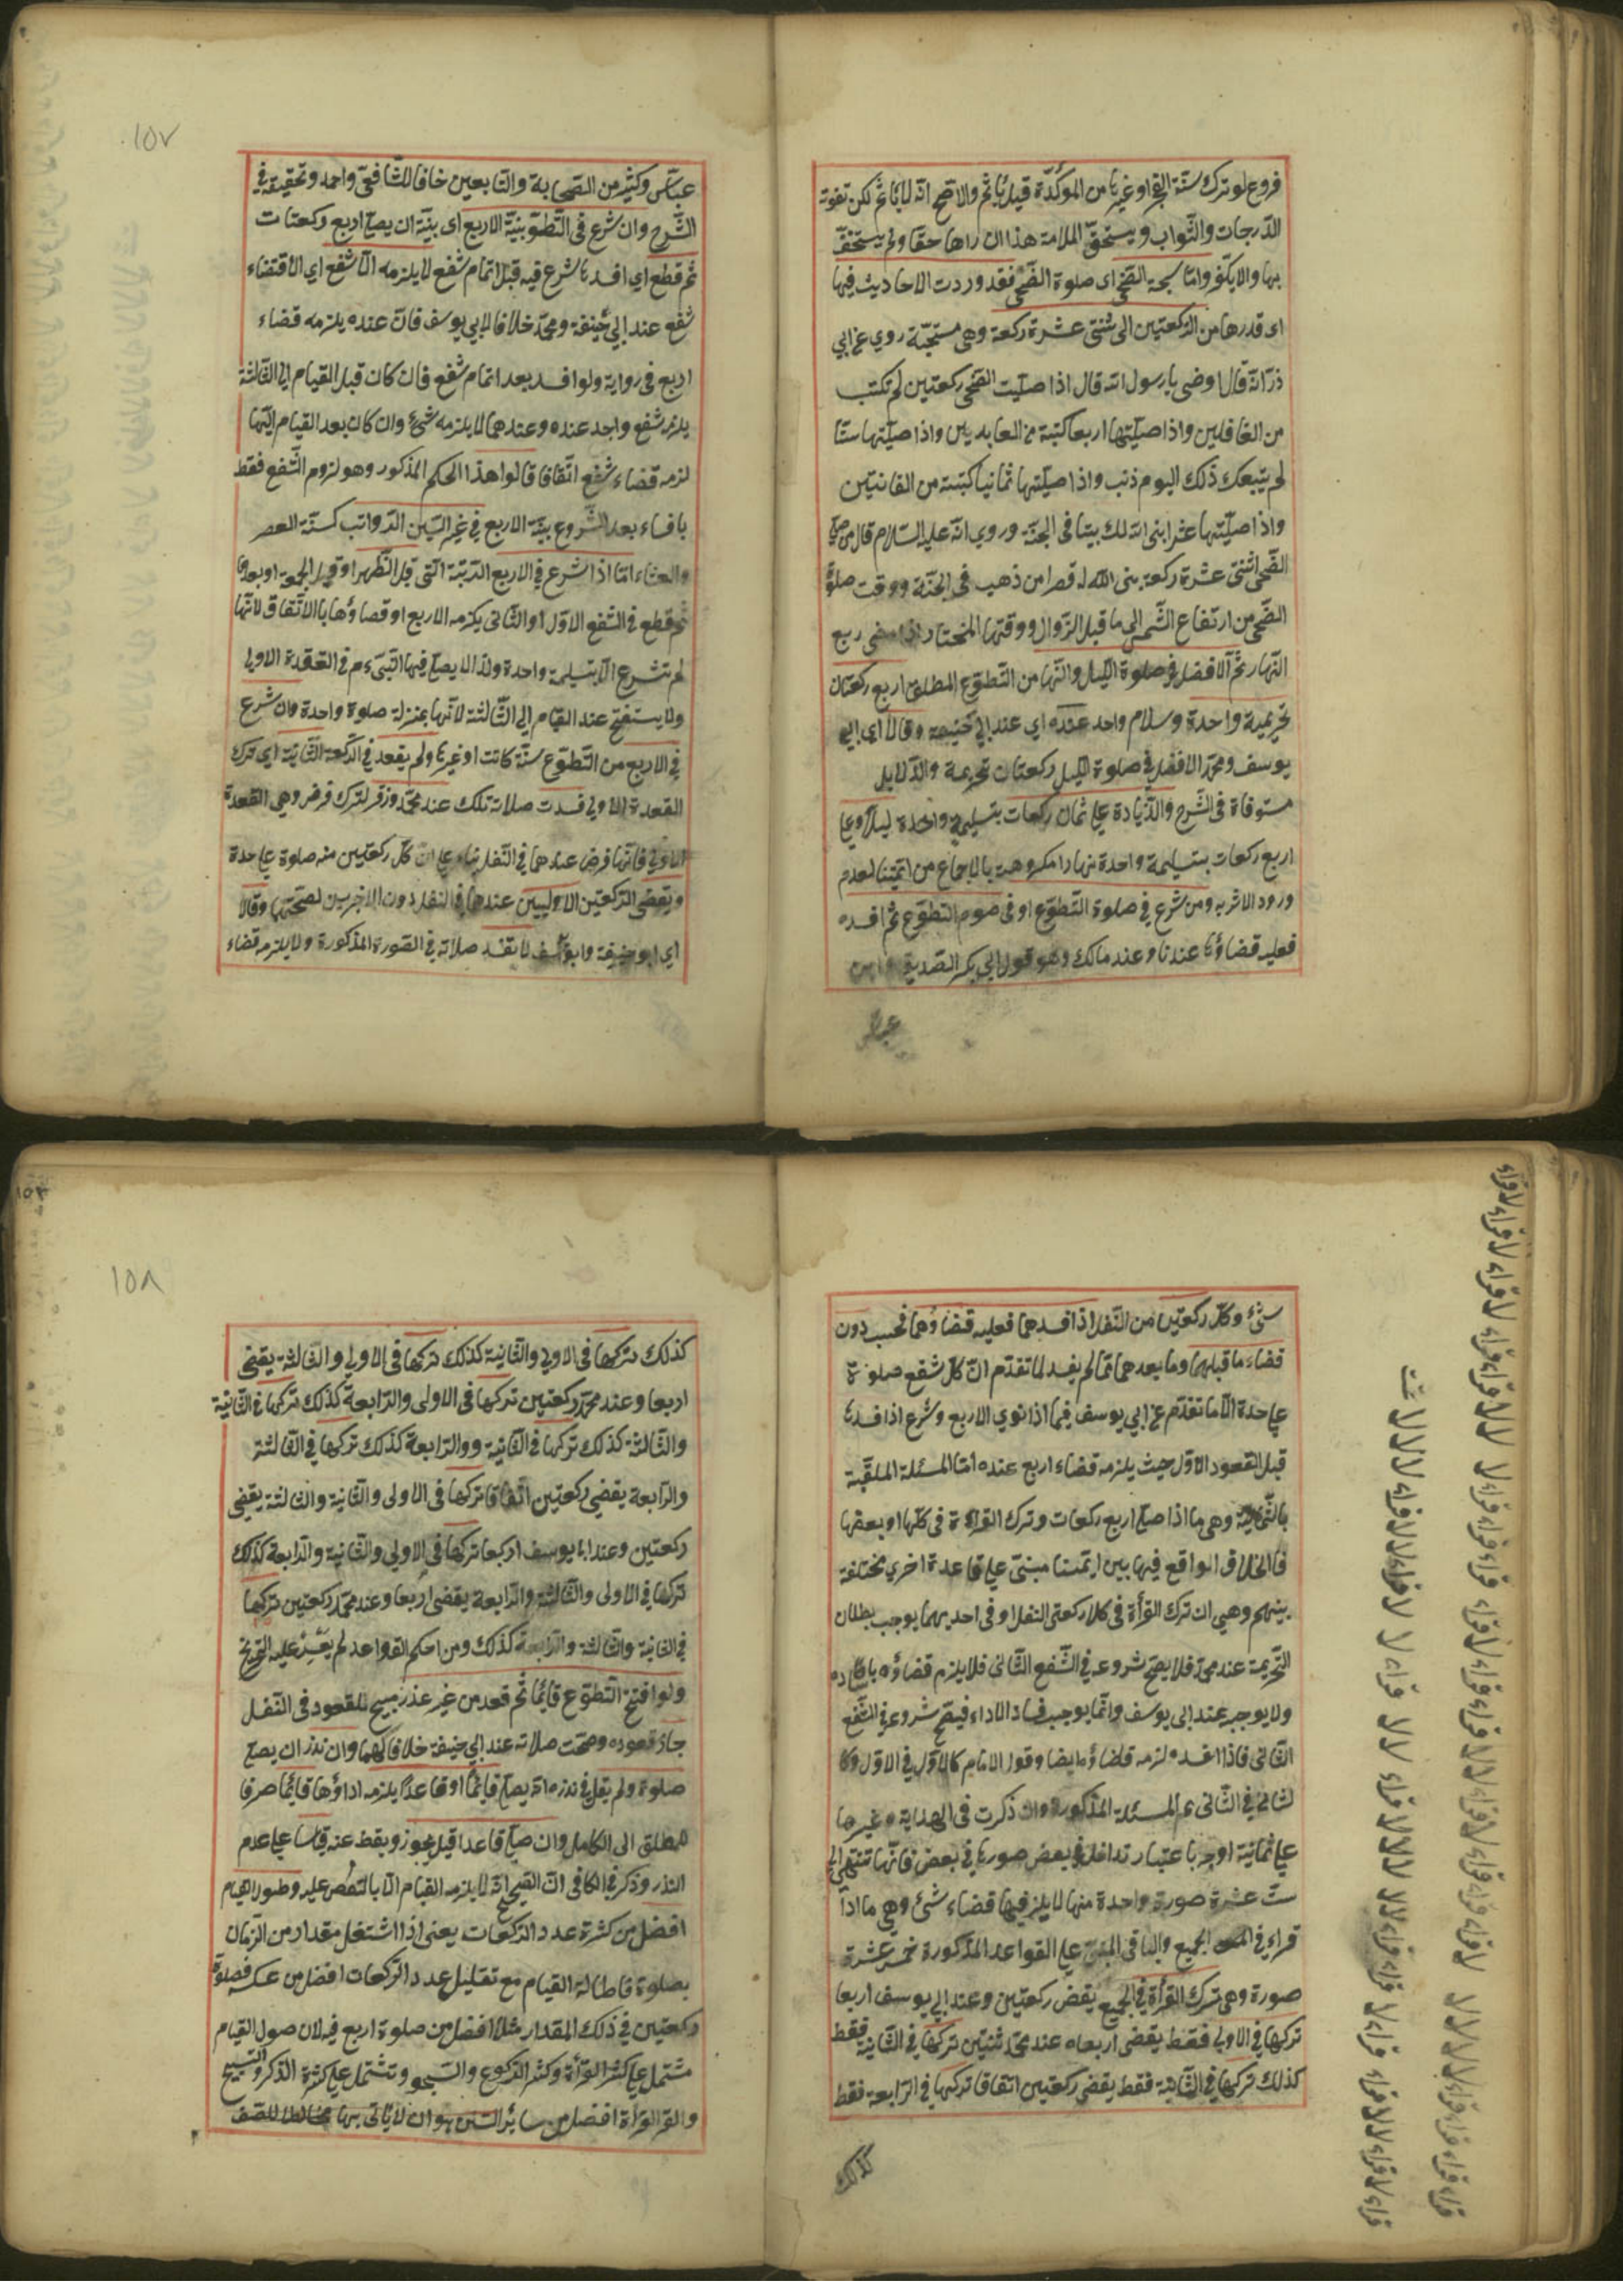 فروع لو ترك سنّة الفجر او غيرها من المؤكدّة قيل يأثم والاصح انه لا يأثم لكن تفوته
الدّرجات والثّواب ويستحقّ الملامة هذا ان راها حقا ولم يستخفّ
بها والا يكفر وامّا سبحة الضحى اى صلوة الضّحى فقد وردت الاحاديث فيها
اى قدرها من الرّكعتين الى ثنتى عشرة ركعة وهى مستحبّة روى عن ابي
ذرّ انّه قال اوصنى يا رسول الله قال اذا صلّيت الضّحى ركعتين لم تكتب
من الغافلين واذا صلّيتها اربعا كتبت من العابدين واذا صلّيتها ستّا
لم يتبعك ذلك اليوم ذنب واذا صلّيتها ثمانيا كتبت من القانتين
واذا صلّيتها عشرا بنى الله لك بيتا فى الجنّة وروى انّه عليه السّلام قال من صلّى
الضّحى اثنتى عشرة ركعة بنى الله له قصرا من ذهب فى الجنّة ووقت صلوة
الضّحى من ارتفاع الشّمس الى ما قبل الزّوال ووقتها المختار اذا مضى ربع
النّهار ثمّ الافضل فى صلوة اللّيل والنّهار من التّطوّع المطلق اربع ركعتان
تحريمة واحدة وسلام واحد عنده اي عند ابي حنيفة وقالا اى ابي
يوسف ومحمّد الافضل فى صلوة اللّيل ركعتان تحريمة والدّلايل
مستوفاة فى الشّرح والزّيادة على ثمان ركعات بتسليمة واحدة ليلا وعلى
اربع ركعات بتسليمة واحدة نهارا مكروهة بالاجماع من ائمّتنا لعدم
ورود الاثر به ومن شرع فى صلوة التّطوّع او فى صوم التطوّع ثمّ افسده
فعليه قضاؤها عندنا وعند مالك وهو قول ابي بكر الصّديق وابن
عباس
١٥٧
عبّاس وكثير من الصّحابة والتّابعين خلافا للشّافعىّ واحمد وتحقيقه فى
الشّرح وان شرع فى التّطوّع بنيّة الاربع اى بنيّة ان يصلّى اربع ركعات
ثمّ قطع اي افسد ما شرع فيه قبل اتمام شفع لا يلزمه الّا شفع اي الّا قضاء
شفع عند ابي حنيفة ومحمّد خلافا لابي يوسف فانّ عنده يلزمه قضاء
اربع فى رواية ولو افسد بعد اتمام شفع فان كان قبل القيام الى الثّالثة
يلزم شفع واحد عنده وعندهما لا يلزمه شئ وان كان بعد القيام اليّها
لزمه قضاء شفع اتّفاقا قالوا هذا الحكم المذكور وهو لزوم الشّفع فقط
بافساء بعد الشّروع بنيّة الاربع فى غير السّنن الرّواتب كسنّة العصر
والعشاء امّا اذا شرع فى الاربع الّتى قبل الظّهر او قبل الجمعة او بعدها
ثمّ قطع فى الشّفع الاوّل او الثّانى يلزمه الاربع او قضاؤها بالاتّفاق لانّها
لم تشرع الّا بتسليمة واحدة ولذا لا يصلّى فيها النّبىّ ءم فى القعدة الاولى
ولا يستفتح عند القيام الى الثّالثة لانّها بمنزلة صلوة واحدة وان شرع
فى الاربع من التّطوّع سنّة كانت او غيرها ولم يقعد فى الرّكعة الثّانية اي ترك
القعدة الاولى فسدت صلاته تلك عند محمّد وزفر لترك فرض وهى القعدة
الاولى فانّها فرض عندهما فى النّفل بناء على انّ كلّ ركعتين منه صلوة على حدة
ويقضى الرّكعتين الاوليين عندهما فى النفل دون الاخريين لصحّتها وقالا
اي ابو حنيفة وابو يوسف لا تفسد صلاته فى الصّورة المذكورة ولا يلزمه قضاء
شئ وكلّ ركعتين من النّفل اذا افسدهما فعليه قضاؤهما فحسب دون
قضاء ما قبلهما وما بعدهما ممّا لم يفسد لما تقدّم انّ كلّ شفع صلوة
على حدة الّا ما تقدّم عن ابي يوسف فيما اذا نوى الاربع وشرع اذا افسدها
قبل القعود الاوّل حيث يلزمه قضاء اربع عنده امّا المسئلة الملقّبة
بالثّمانية وهى ما اذا صلّى اربع ركعات وترك القراءة فى كلّها او بعضها
فالخلاف الواقع فيها بين ائمّتنا مبنىّ على قاعدة اخرى مختلفة
بينهم وهى ان ترك القرأة فى كلا ركعتى النفل او فى احديهما يوجب بطلان
التّحريمة عند محمّد فلا يصحّ شروعه فى الشّفع الثّانى فلا يلزم قضاؤه بافساده
ولا يوجبه عند ابى يوسف وانّما يوجب فساد الاداء فيصحّ شروعه فى الشّفع
الثّانى فاذا افسده لزمه قضاؤه ايضا وقول الامام كالاوّل فى الاوّل وكا
لثانى فى الثّانى ثم المسئلة المذكورة وان ذكرت فى الهداية وغيرها
على ثمانية اوجه باعتبار تداخل بعض صورها فى بعض فانّها تنتهى الى
ستّ عشرة صورة واحدة منها لا يلزم فيها قضاء شئ وهى ما اذا
قراء فى الجميع والباقى المبنىّ على القواعد المذكورة خمس عشرة
صورة وهى ترك القرأة فى الجميع يقض ركعتين وعند ابي يوسف اربعا
تركها فى الاولى فقط يقضى اربعا وعند محمّد ثنتين تركها فى الثّانية فقط
كذلك تركها فى الثّالثة فقط يقضى ركعتين اتفاقا تركها فى الرّابعة فقط
كذلك
١٥٨
كذلك تركها فى الاولى والثّانية كذلك تركها فى الاولى والثّالثة يقضى
اربعا وعند محمّد ركعتين تركها فى الاولى والرّابعة كذلك تركها فى الثّانية
والثّالثة كذلك تركها فى الثّانية ووالرّابعة كذلك تركها فى الثّالثة
والرّابعة يقضى ركعتين اتفاقا تركها فى الاولى والثّانية والثالثة يقضى
ركعتين وعند ابا يوسف اربعا تركها فى الاولى والثّانية والرّابعة كذلك
تركها فى الاولى والثّالثة والرّابعة يقضى اربعا وعند محمّد ركعتين تركها
فى الثانية والثّالثة والرّابعة كذلك ومن احكم القواعد لم يعسر عليه التّخريج
ولو افتتح التّطوّع قائما ثمّ قعد من غير عذر مبيح للقعود فى النّفل
جاز قعوده وصحّت صلاته عند ابي حنيفة خلافا لهما وان نذر ان يصلّى
صلوة ولم يقل فى نذره ان يصلّى قائما او قاعدا يلزمه اداؤها قائما صرفا
للمطلق الى الكامل وان صلّى قاعدا قيل يجوز ويقط عنه قياسا على عدم
النذر وذكر فى الكافى انّ الصّحيح انّه لا يلزمه القيام الّا بالتنصيص عليه وطول القيام
افضل من كثرة عدد الرّكعات يعنى اذا اشتغل مقدار من الزّمان
بصلوة فاطالة القيام مع تقليل عدد الرّكعات افضل من عكسه فصلوة
ركعتين فى ذلك المقدار مثلا افضل من صلوة اربع فيه لان طول القيام
مشتمل على كثرة القرأة وكثرة الرّكوع والسّجود وتشتمل على كثرة الذكر والتّسبيح
القرأة افضل من سائر السّنن هو ان لا يأتى بها مخالطا للصّف